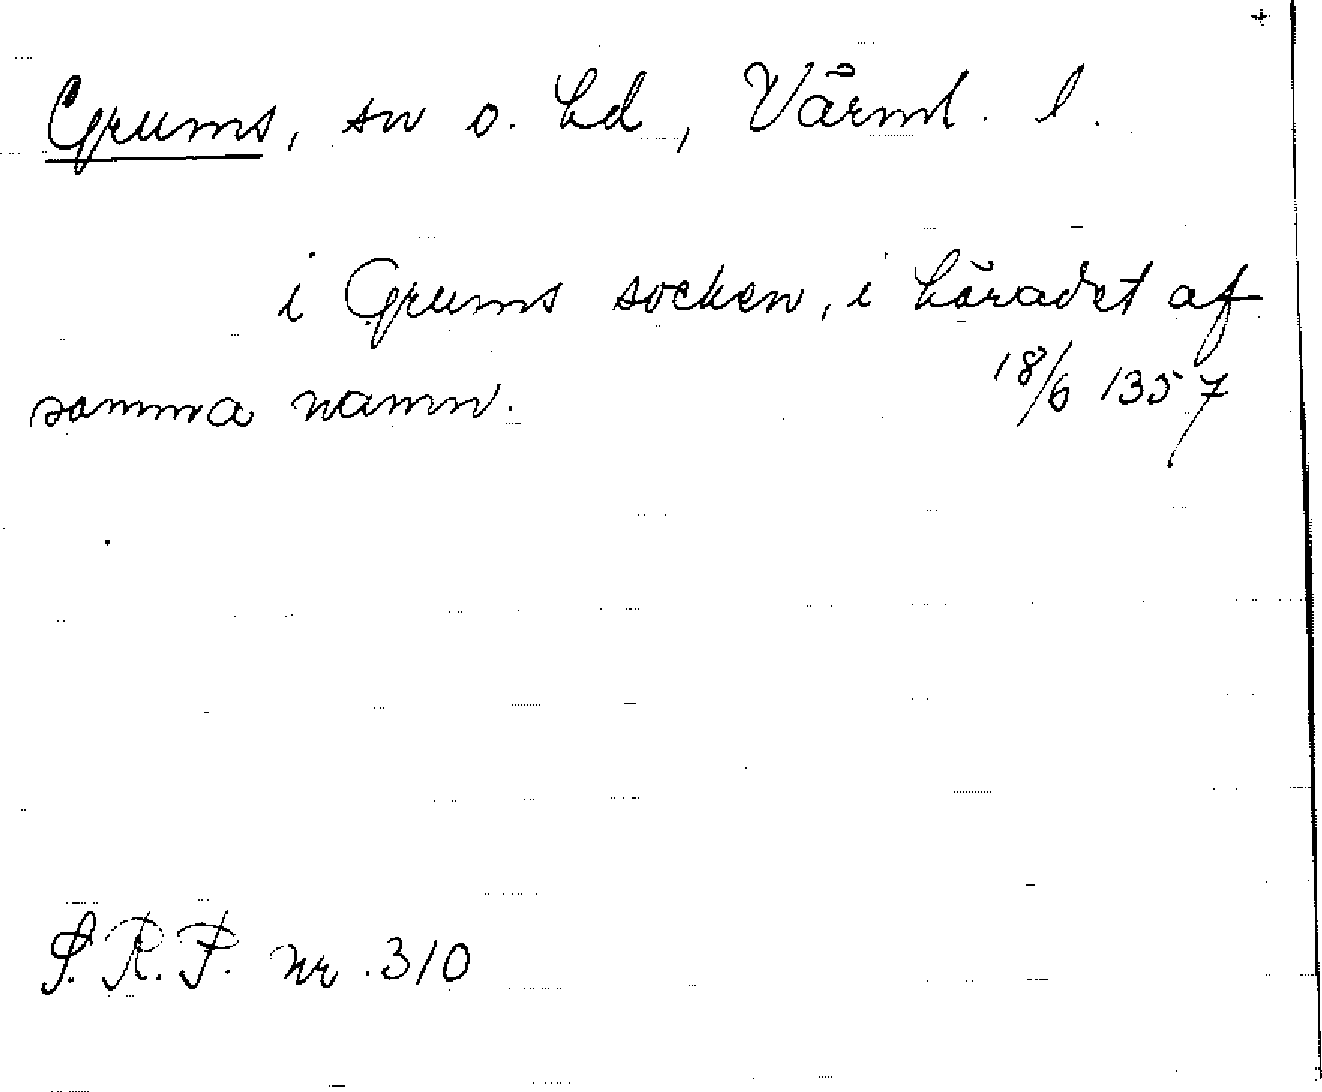 +
Grums, sn o. hd, Värml. l.
i Grums socken, i häradet af
samma namn. 18/6 1357
S. R. P. nr. 310